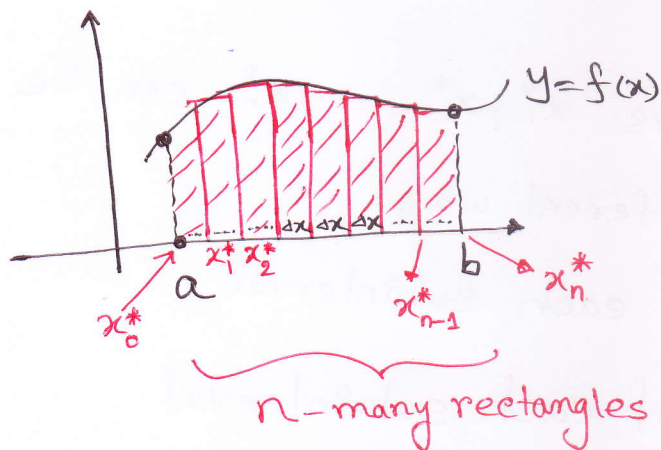 y=f(x)
... ... ... Δx Δx Δx ... ...
x₁* x₂*
a b
x₀* xₙ₋₁* xₙ*
n-many rectangles